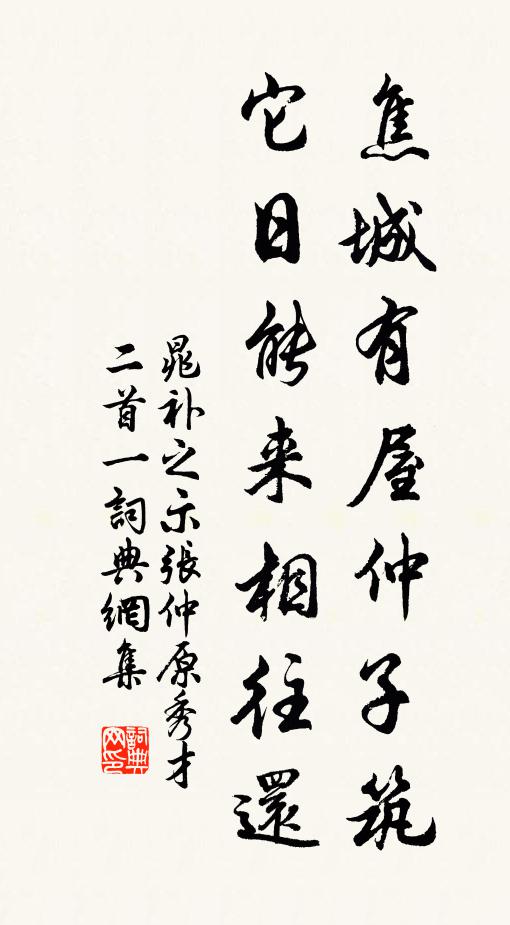 焦城有屋仲子筑
它日能来相往還
晁补之示張仲原秀才
二首一詞典網集
詞典
网印